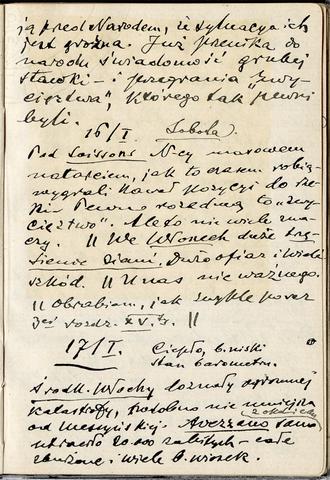 ją przed Narodem, iż sytuacja ich
jest groźna. Już przenika do
narodu świadomość grubej
stawki – i przegrania "zwy-
cięstwa", którego tak "pewni
byli.
16/I. Sobota.
Pod Soissons N-cy masowem
natarciem, jak to czasem robią
wygrali kawał pozycji do rze-
ki. Pewno rozedmą to "zwy-
cięstwo". Ale to nie wiele zna-
czy. || We Włoszech duże trzę-
sienie ziemi. Dużo ofiar i wiele
szkód. || U nas nic ważnego.
|| Obrabiam, jak zwykle powieść
rozdz. XV. ||
17/I. Ciepło, b. niski
stan barometru.
Środk. Włochy doznały ogromnej
katastrofy, podobno nie mniejszej
od messyńskiej. Avezzano samo
z okolicą
utraciło 20.000 zabitych – całe
zburzone i wiele b. wiosek.